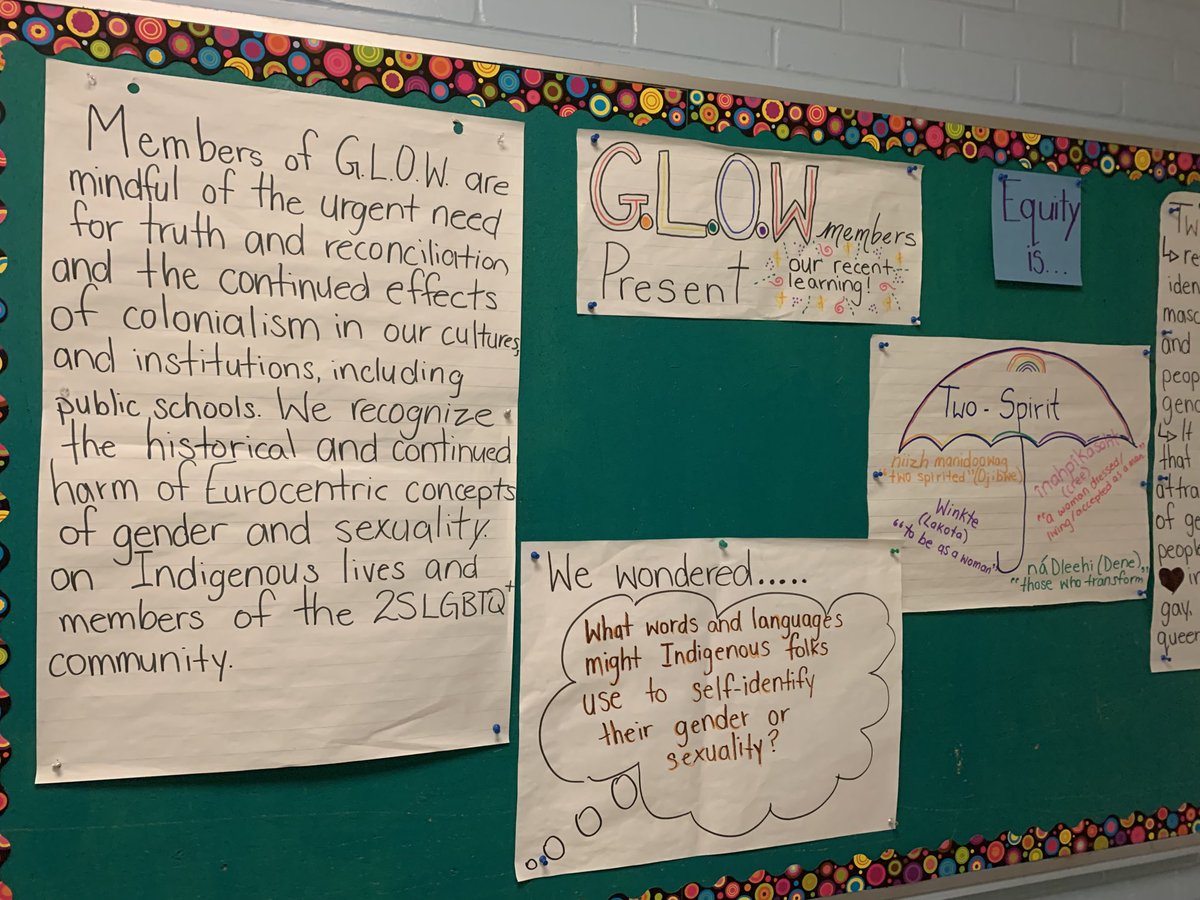 Members of G.L.O.W. are
mindful of the urgent need
for truth and reconciliation
and the continued effects
of colonialism in our cultures
and institutions, including
public schools. We recognize
the historical and continued
harm of Eurocentric concepts
of gender and sexuality
on Indigenous lives and
members of the 2SLGBTQ+
community.
G.L.O.W members
Present our recent
learning!
Equity
is...
Two-Spirit
niizh manidoowag
"two spirited" (Ojibwe)
Winkte
(Lakota)
"to be as a woman"
(Cree)
"a woman dressed/
living/accepted as a man"
ná Dleehi (Dene)
"those who transform"
We wondered.....
What words and languages
might Indigenous folks
use to self-identify
their gender or
sexuality?
Tw
↳ re
iden
masc
and
peop
gend
↳ It
that
attra
of ge
people
in
gay,
queer